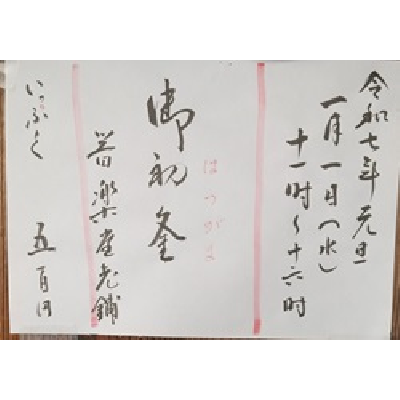 令和七年 元旦
一月一日(水)
十一時〜十六時
はつがま
御初釜
善楽堂老舗
いっぷく 五百円